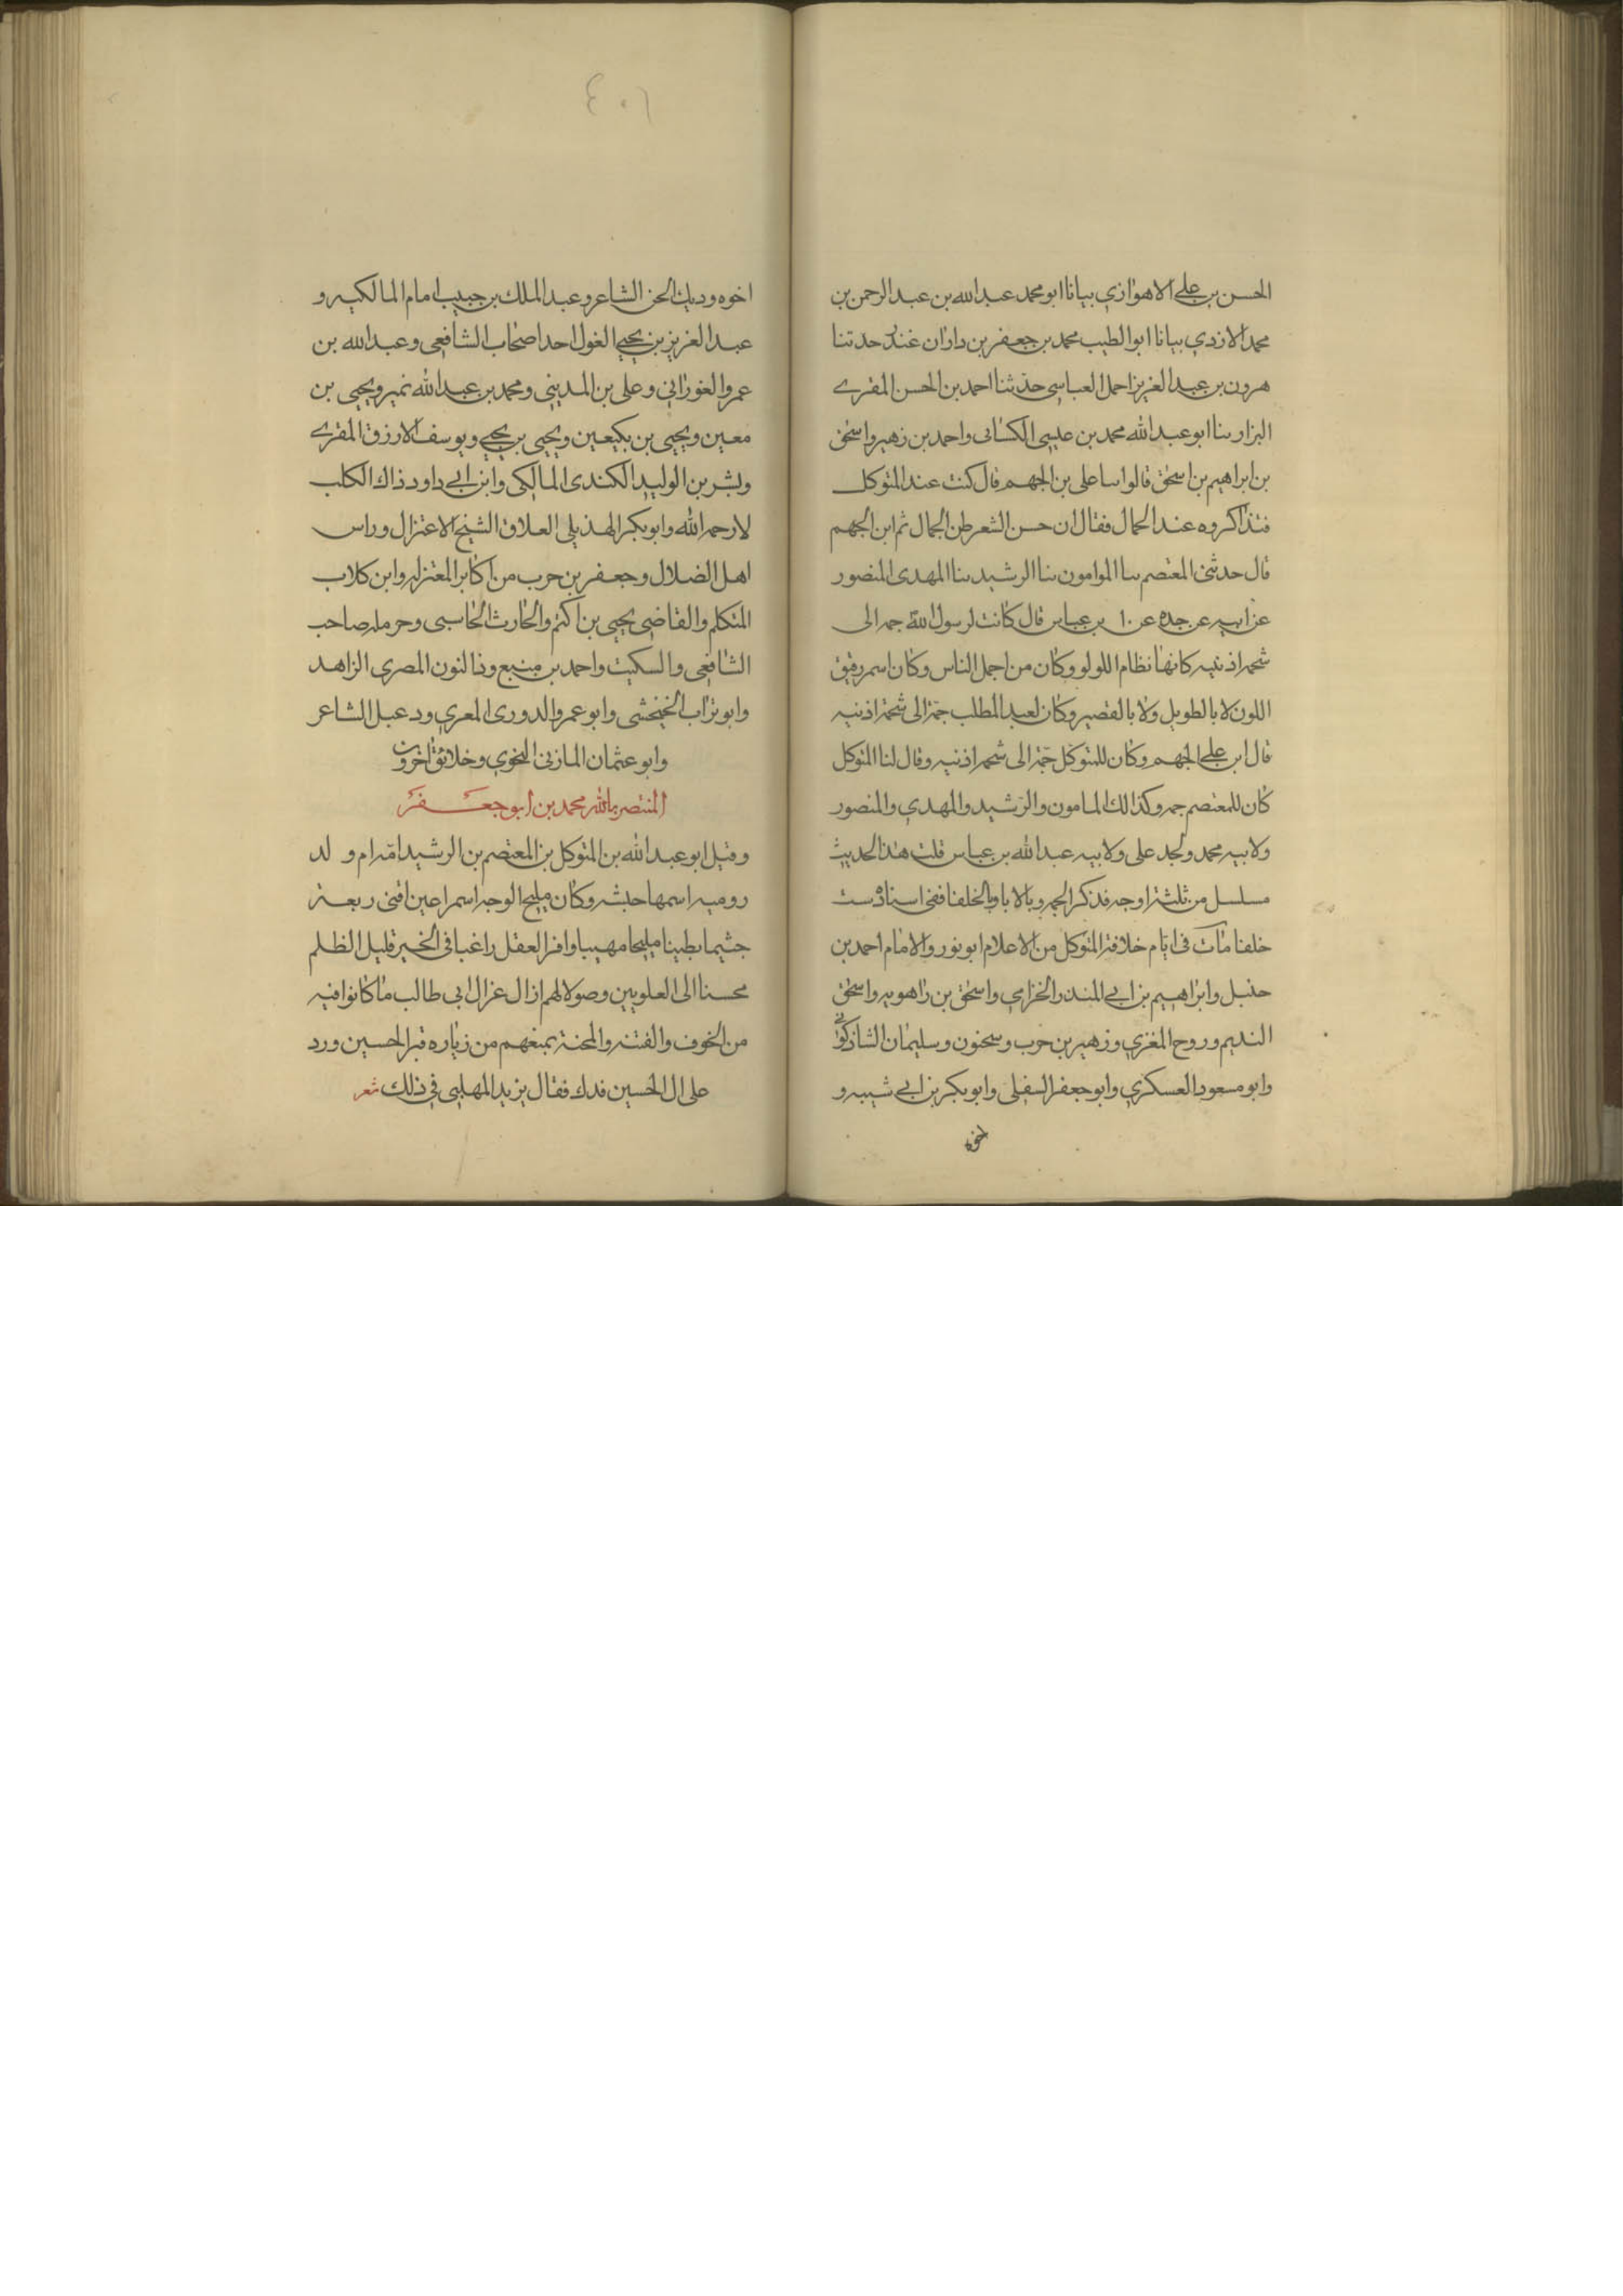 الحسن بن علي الاهوازي بيانا ابو محمد عبد الله بن عبد الرحمن بن
محمد الازدي بيانا ابو الطيب محمد بن جعفر بن داران غندر حدثنا
هرون بن عبد العزيز احمل العباسي حدثنا احمد بن الحسن المقرے
البزار بنا ابو عبد الله محمد بن عيسى الكسائى واحمد بن زهير واسحق
بن ابراهيم بن اسحق قالوا سا على بن الجهم قال كنت عند المتوكل
فتذاكروه عند الجمال فقال ان حسن الشعر طن الجمال ثم ابن الجهم
قال حدثنى المعتصم بنا الموامون بنا الرشيد بنا المهدى المنصور
عن ابيه عن جده عن ١٠ بن عباس قال كانت لرسول الله جمه الى
شحمه اذنيه كانها نظام اللولو وكان من اجمل الناس وكان اسمر رقيق
اللون لا بالطويل ولا بالقصير وكان لعبد المطلب جمة الى شحمة اذنيه
قال ابن علي الجهم وكان للمتوكل جمة الى شحمه اذنيه وقال لنا المتوكل
كان للمعتصم جمه وكذالك المامون والرشيد والمهدي والمنصور
ولابيه محمد ولجد على ولابيه عبد الله بن عباس قلت هذا الحديث
مسلسل من ثلثة اوجه فذكر الجمه وبالابا وبالخلفا ففى اسناده ست
خلفا مات فى ايام خلافة المتوكل من الاعلام ابو نور والامام احمد بن
حنبل وابراهيم بن ابي المندر الخزامي واسحق بن راهويه واسحق
النديم وروح المغزي وزهير بن حرب وسحنون وسليمان الشاذكوانے
وابو مسعود العسكري وابو جعفر السفيلى وابو بكر بن ابي شيبه و
اخوه
٤٠٦
اخوه وديك الجن الشاعر وعبد الملك بن حبيب امام المالكيه و
عبد العزيز بن يحيي الغول احد اصحاب الشافعى وعبد الله بن
عمرو الغوراني وعلى بن المدينى ومحمد بن عبد الله نمير ويحيى بن
معين ويحيى بن بكيعين ويحيى بن يحيي ويوسف الارزق المقرے
وبشر بن الوليد الكندى المالكى وابن ابي داود ذاك الكلب
لارحمه الله وابو بكر الهذيلى العلاق الشيخ الاعتزال وراس
اهل الضلال وجعفر بن حرب من اكابر المعتزله وابن كلاب
المتكلم والقاضى يحيى بن اكثم والحارث الحاسبى وحرمله صاحب
الشافعى والسكيت واحمد بن منيع وذالنون المصرى الزاهد
وابو تراب النخشى وابو عمرو الدورى المعري ودعبل الشاعر
وابو عثمان المازنى النحوي وخلائق اخرون
المنتصر بالله محمد بن ابو جعفر
وقيل ابو عبد الله بن المتوكل بن المعتصم بن الرشيد امه ام ولد
روميه اسمها حبشه وكان مليح الوجه اسمر اعين اقنى ربعة
جثيما بطينا مليحا مهيبا وافر العقل راغبا فى الخير قليل الظلم
محسنا الى العلويين وصولا لهم ازال عزال ابى طالب ما كانوا فيه
من الخوف والفتنه والمحنة بمنعهم من زياره قبر الحسين ورد
على ال الحسين فدك فقال يزيد المهلبى فى ذلك شعر